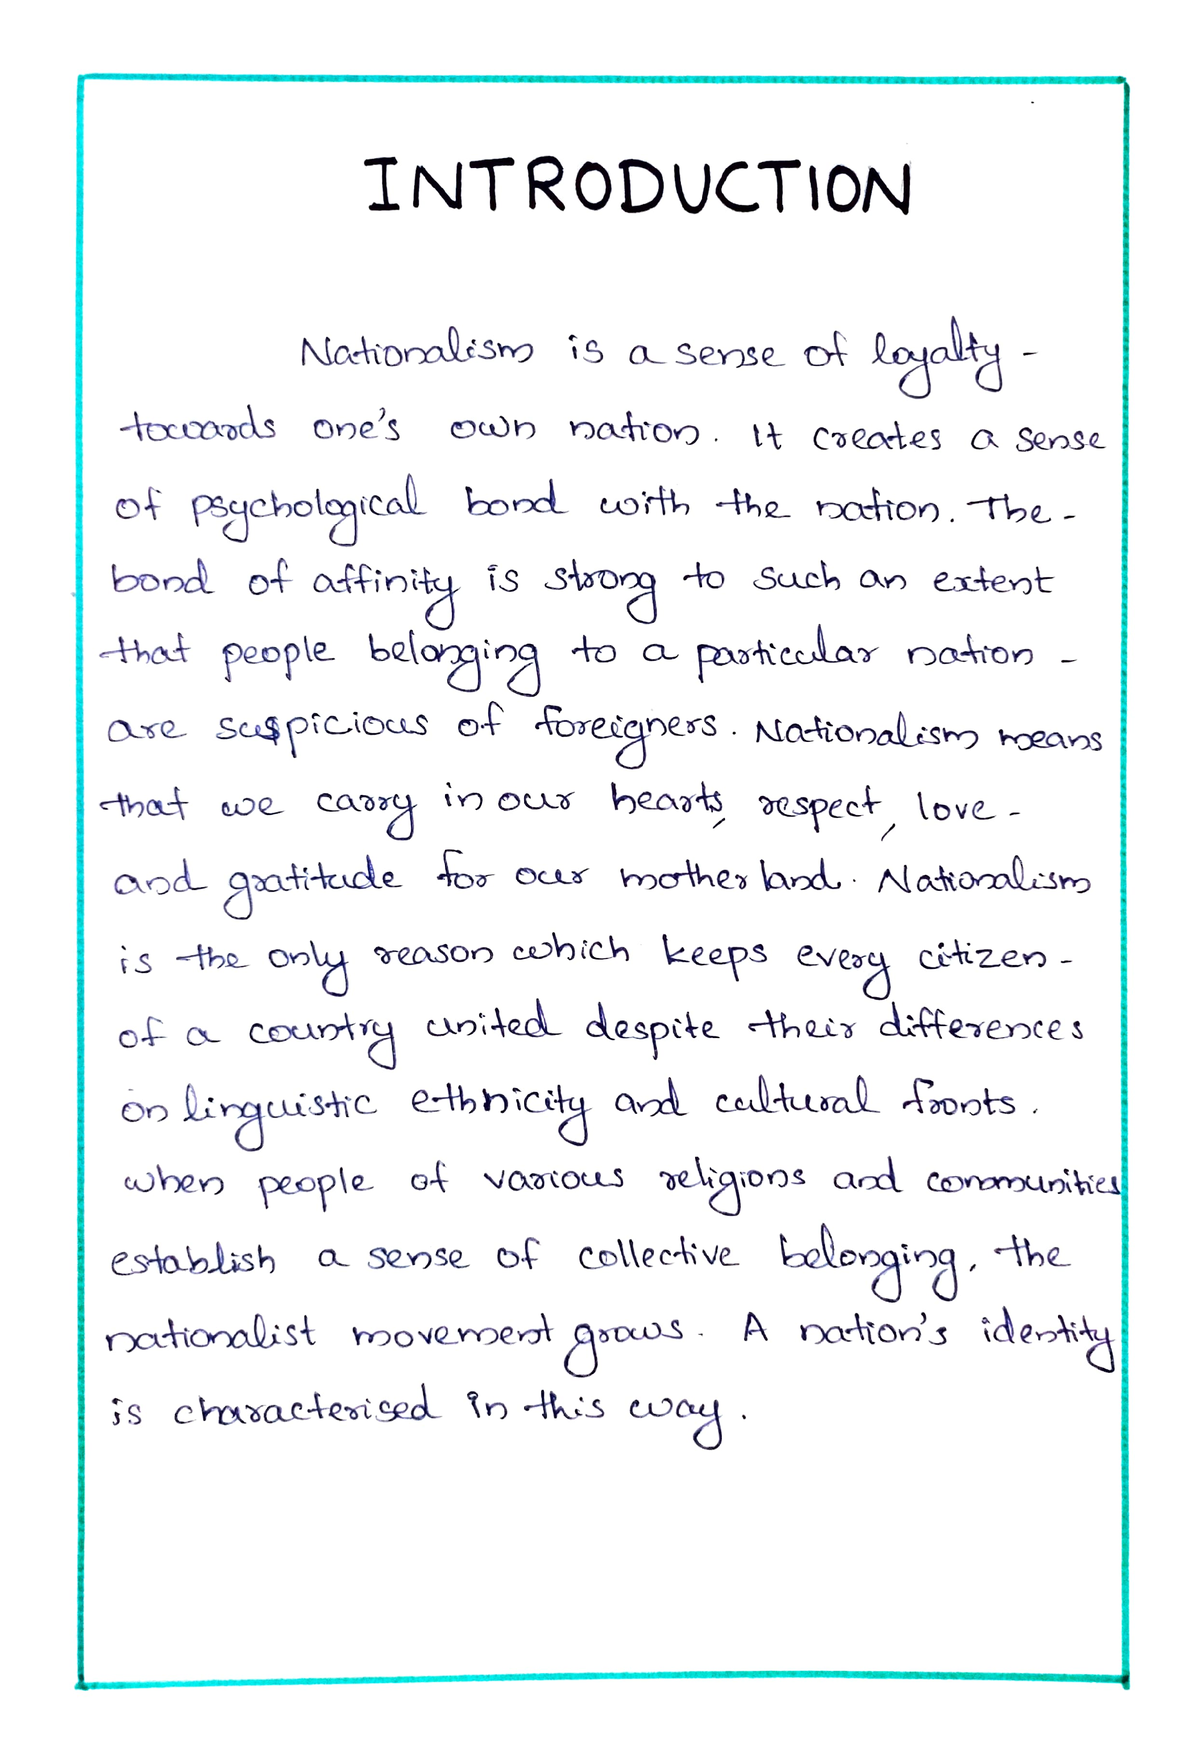 INTRODUCTION
Nationalism is a sense of loyalty -
towards one's own nation. It creates a sense
of psychological bond with the nation. The -
bond of affinity is strong to such an extent
that people belonging to a particular nation -
are suspicious of foreigners. Nationalism means
that we carry in our hearts, respect, love -
and gratitude for our mother land. Nationalism
is the only reason which keeps every citizen -
of a country united despite their differences
on linguistic ethnicity and cultural fronts.
when people of various religions and communities
establish a sense of collective belonging, the
nationalist movement grows. A nation's identity
is characterised in this way.